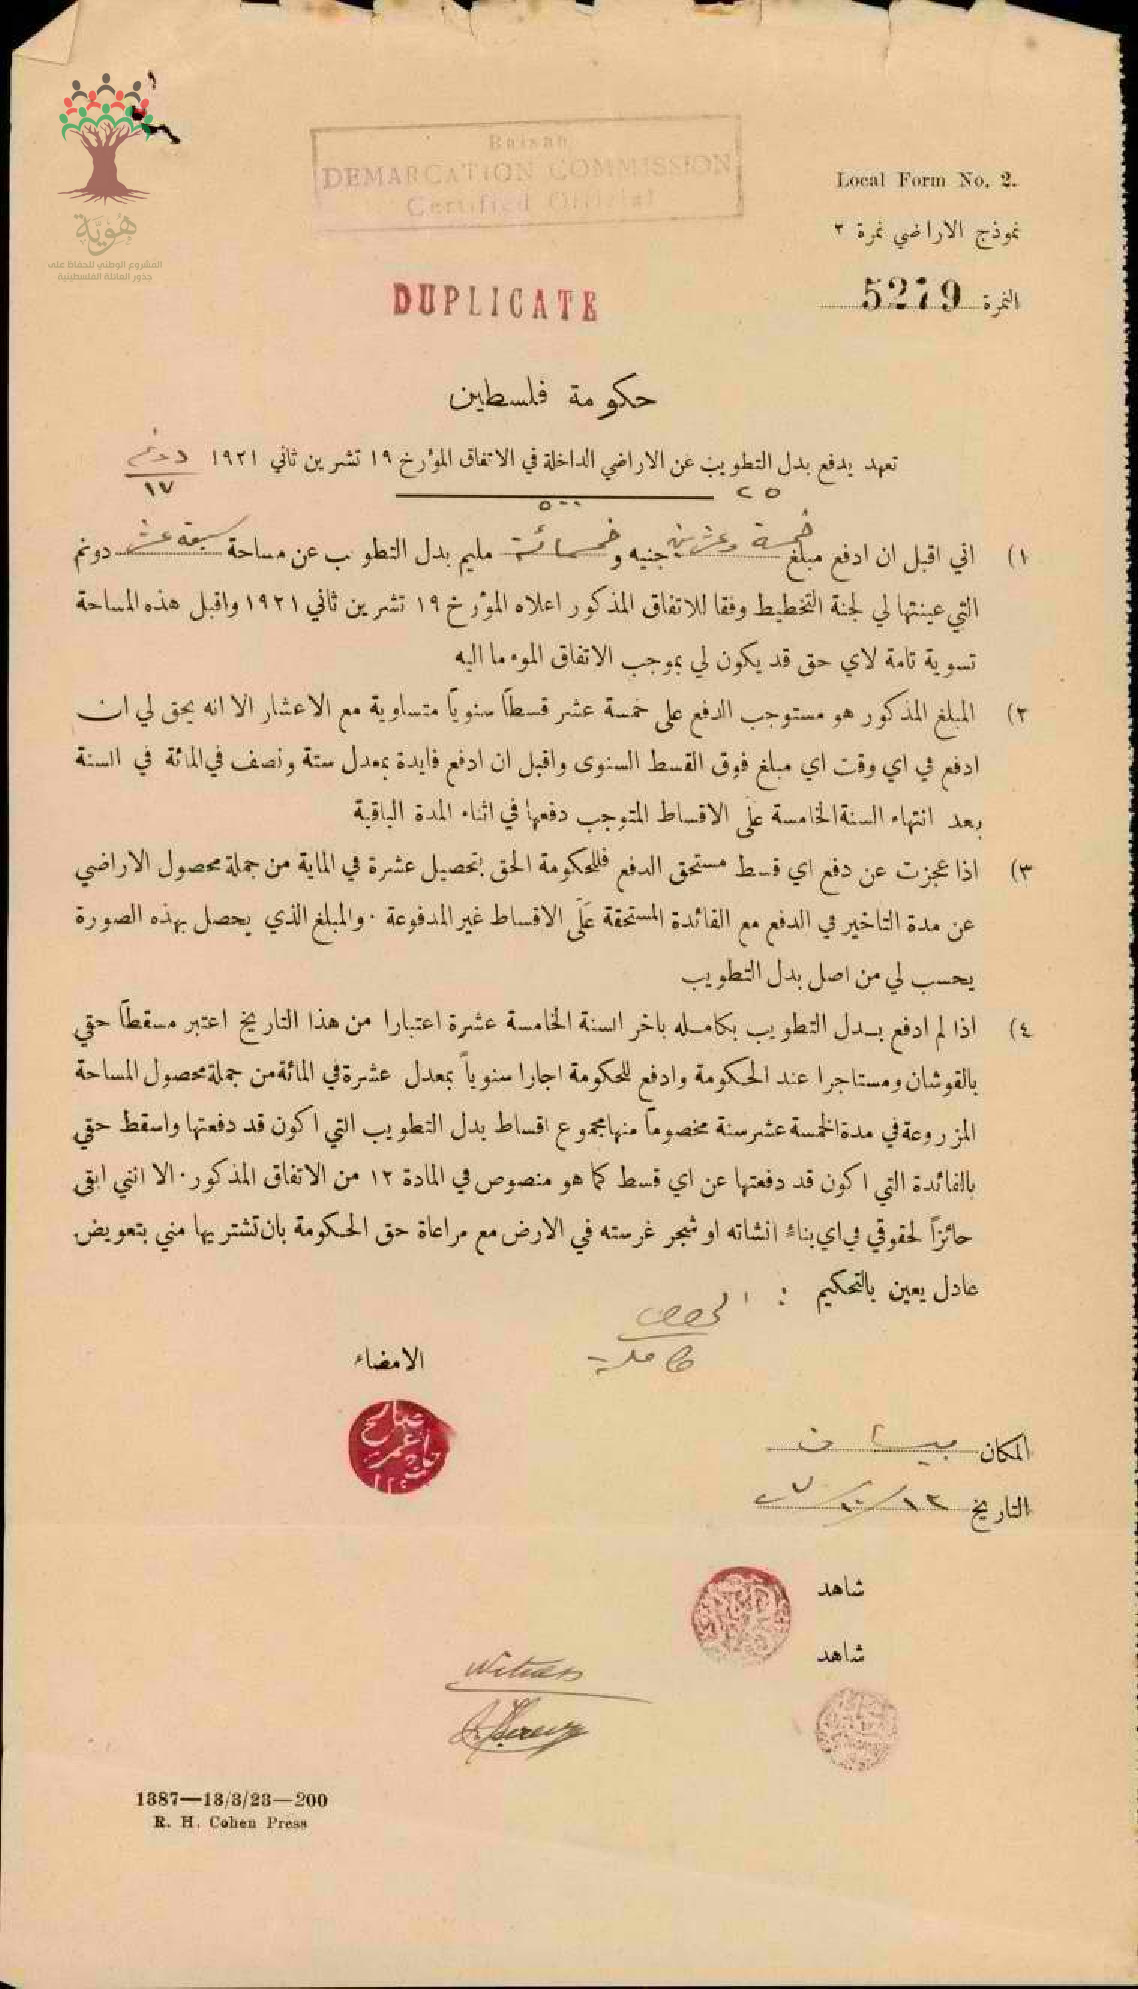 هُوِيَّة
المشروع الوطني للحفاظ على
جذور العائلة الفلسطينية
Baisan
DEMARCATION COMMISSION
Certified Official
Local Form No. 2.
نموذج الاراضي نمرة ٢
النمرة 5279
DUPLICATE
حكومة فلسطين
تعهد بدفع بدل التطويب عن الاراضي الداخلة في الاتفاق المؤرخ ١٩ تشرين ثاني ١٩٢١ دونم ١٧
٢٥ ٥٠٠
١) اني اقبل ان ادفع مبلغ خمسة وعشرين جنيه و خمسمائة مليم بدل التطويب عن مساحة سبعة عشر دونم
التي عينتها لي لجنة التخطيط وفقا للاتفاق المذكور اعلاه المؤرخ ١٩ تشرين ثاني ١٩٢١ واقبل هذه المساحة
تسوية تامة لاي حق قد يكون لي بموجب الاتفاق الموء ما اليه
٢) المبلغ المذكور هو مستوجب الدفع على خمسة عشر قسطاً سنوياً متساوية مع الاعشار الا انه يحق لي ان
ادفع في اي وقت اي مبلغ فوق القسط السنوى واقبل ان ادفع فايدة بمعدل ستة ونصف في المائة في السنة
بعد انتهاء السنة الخامسة على الاقساط المتوجب دفعها في اثناء المدة الباقية
٣) اذا عجزت عن دفع اي قسط مستحق الدفع فللحكومة الحق بتحصيل عشرة في الماية من جملة محصول الاراضي
عن مدة التاخير في الدفع مع الفائدة المستحقة عَلَى الاقساط غير المدفوعة . والمبلغ الذي يحصل بهذه الصورة
يحسب لي من اصل بدل التطويب
٤) اذا لم ادفع بدل التطويب بكامله باخر السنة الخامسة عشرة اعتبارا من هذا التاريخ اعتبر مسقطاً حقي
بالقوشان ومستاجرا عند الحكومة وادفع للحكومة اجارا سنوياً بمعدل عشرة في المائة من جملة محصول المساحة
المزروعة في مدة الخمسة عشر سنة مخصوماً منها مجموع اقساط بدل التطويب التي اكون قد دفعتها واسقط حقي
بالفائدة التي اكون قد دفعتها عن اي قسط كما هو منصوص في المادة ١٣ من الاتفاق المذكور . الا انني ابقى
حائزاً لحقوقي في اي بناء انشاته او شجر غرسته في الارض مع مراعاة حق الحكومة بان تشتريها مني بتعويض
عادل يعين بالتحكيم :
كاملة
الامضاء
المكان بيسان
التاريخ ١٢/١٠/٢٧
شاهد
شاهد
Witness
1387—13/3/23—200
R. H. Cohen Press